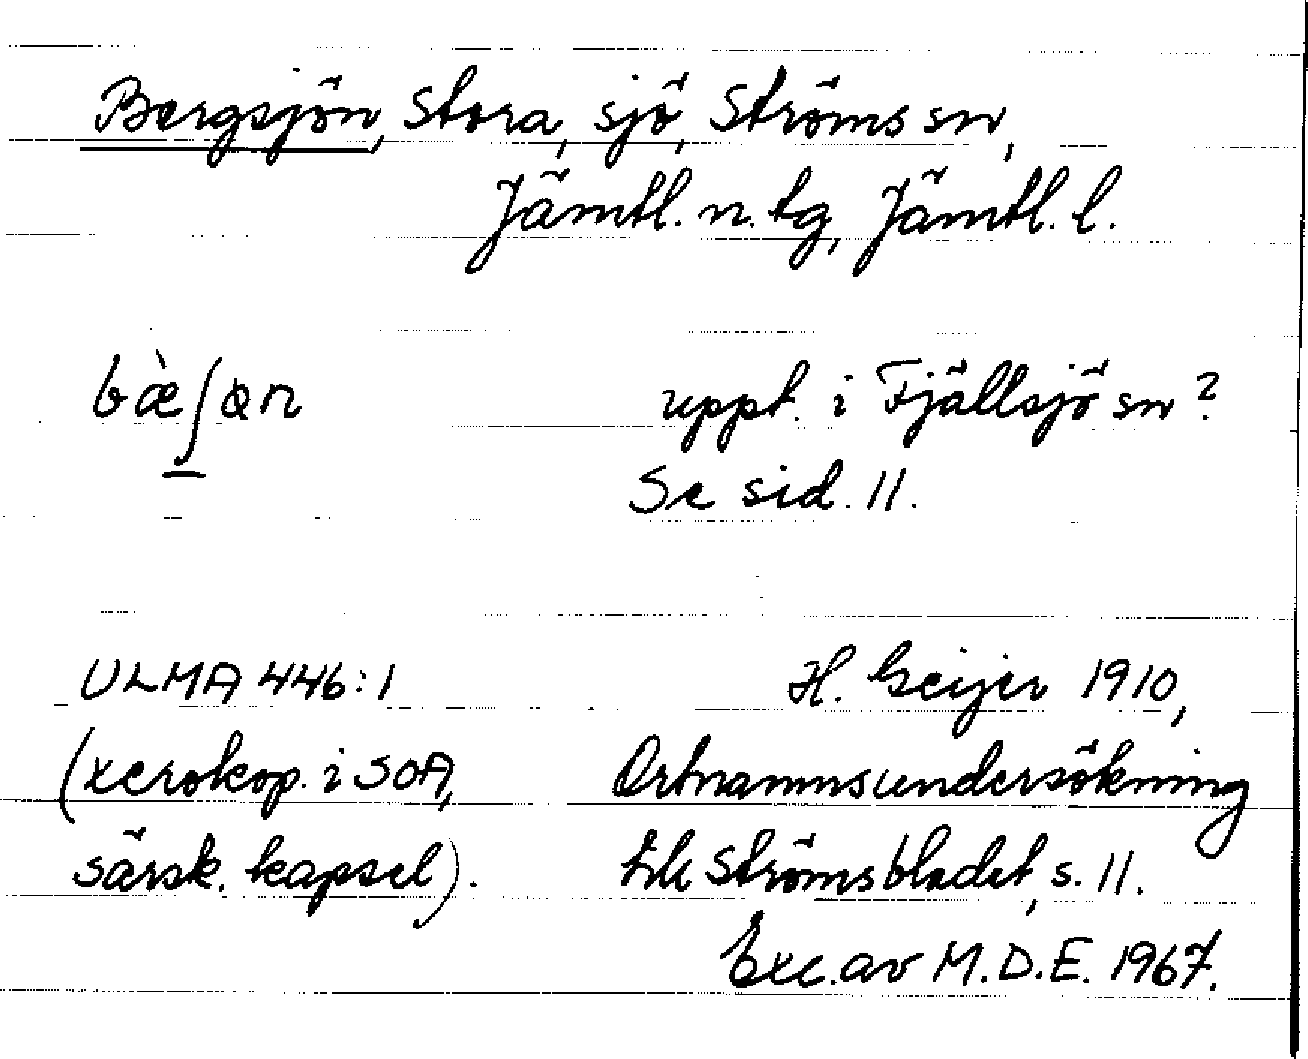 Bergsjön, Stora, sjö, Ströms sn,
Jämtl. n. tg, Jämtl. l.
bæ̀ʃɵn uppt. i Fjällsjö sn?
Se sid. 11.
ULMA 446:1 H. Geijer 1910,
(xerokop. i SOA, Ortnamnsundersökning
särsk. kapsel). till Strömsbladet, s. 11.
Exc. av M.D.E. 1967.